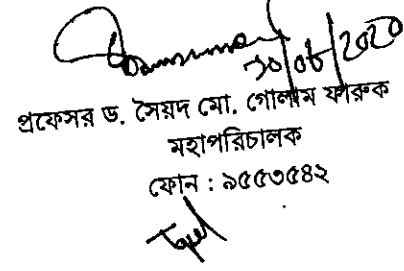 30/06/2020
প্রফেসর ড. সৈয়দ মো. গোলাম ফারুক
মহাপরিচালক
ফোন : ৯৫৫৩৫৪২